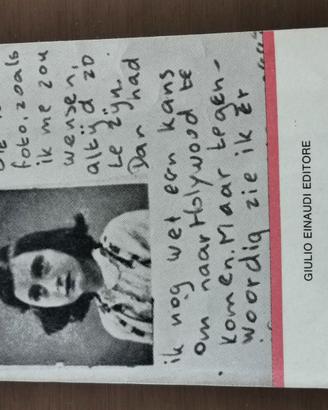 foto, zoals
ik me zou
wensen,
altijd zo
te zijn.
Dan had
ik nog wel een kans
om naar Holywood te
komen. Maar tegen-
woordig zie ik er
GIULIO EINAUDI EDITORE